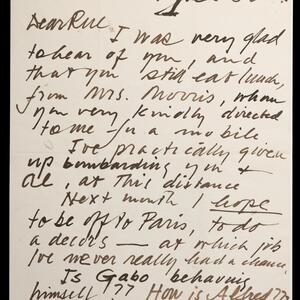 Dear Rue
I was very glad
to hear of you, and
that you still eat lunch,
from Mrs. Morris, whom
you very kindly directed
to me for a mobile.
I've practically given
up bombarding you +
al, at this distance
Next month I hope
to be off to Paris, to do
a decors — at which job
I've never really had a chance.
Is Gabo behaving
himself ?? How is Alfred??